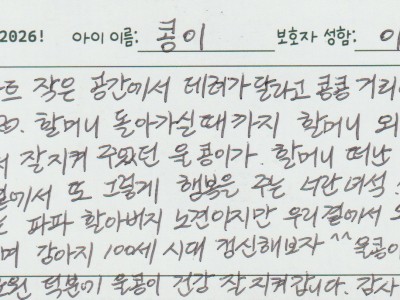 2026! 아이 이름: 콩이 보호자 성함: 이
작은 공간에서 데려가달라고 콩콩 거리
할머니 돌아가실때까지 할머니 외
서 잘지켜 주었던 울콩이가. 할머니 떠난
곁에서 또 그렇게 행복은 주는 너란녀석
파파 할아버지 노견이지만 우리곁에서
며 강아지 100세 시대 갱신해보자 ^^ 울콩이
덕분에 울콩이 건강 잘 지켜집니다. 감사